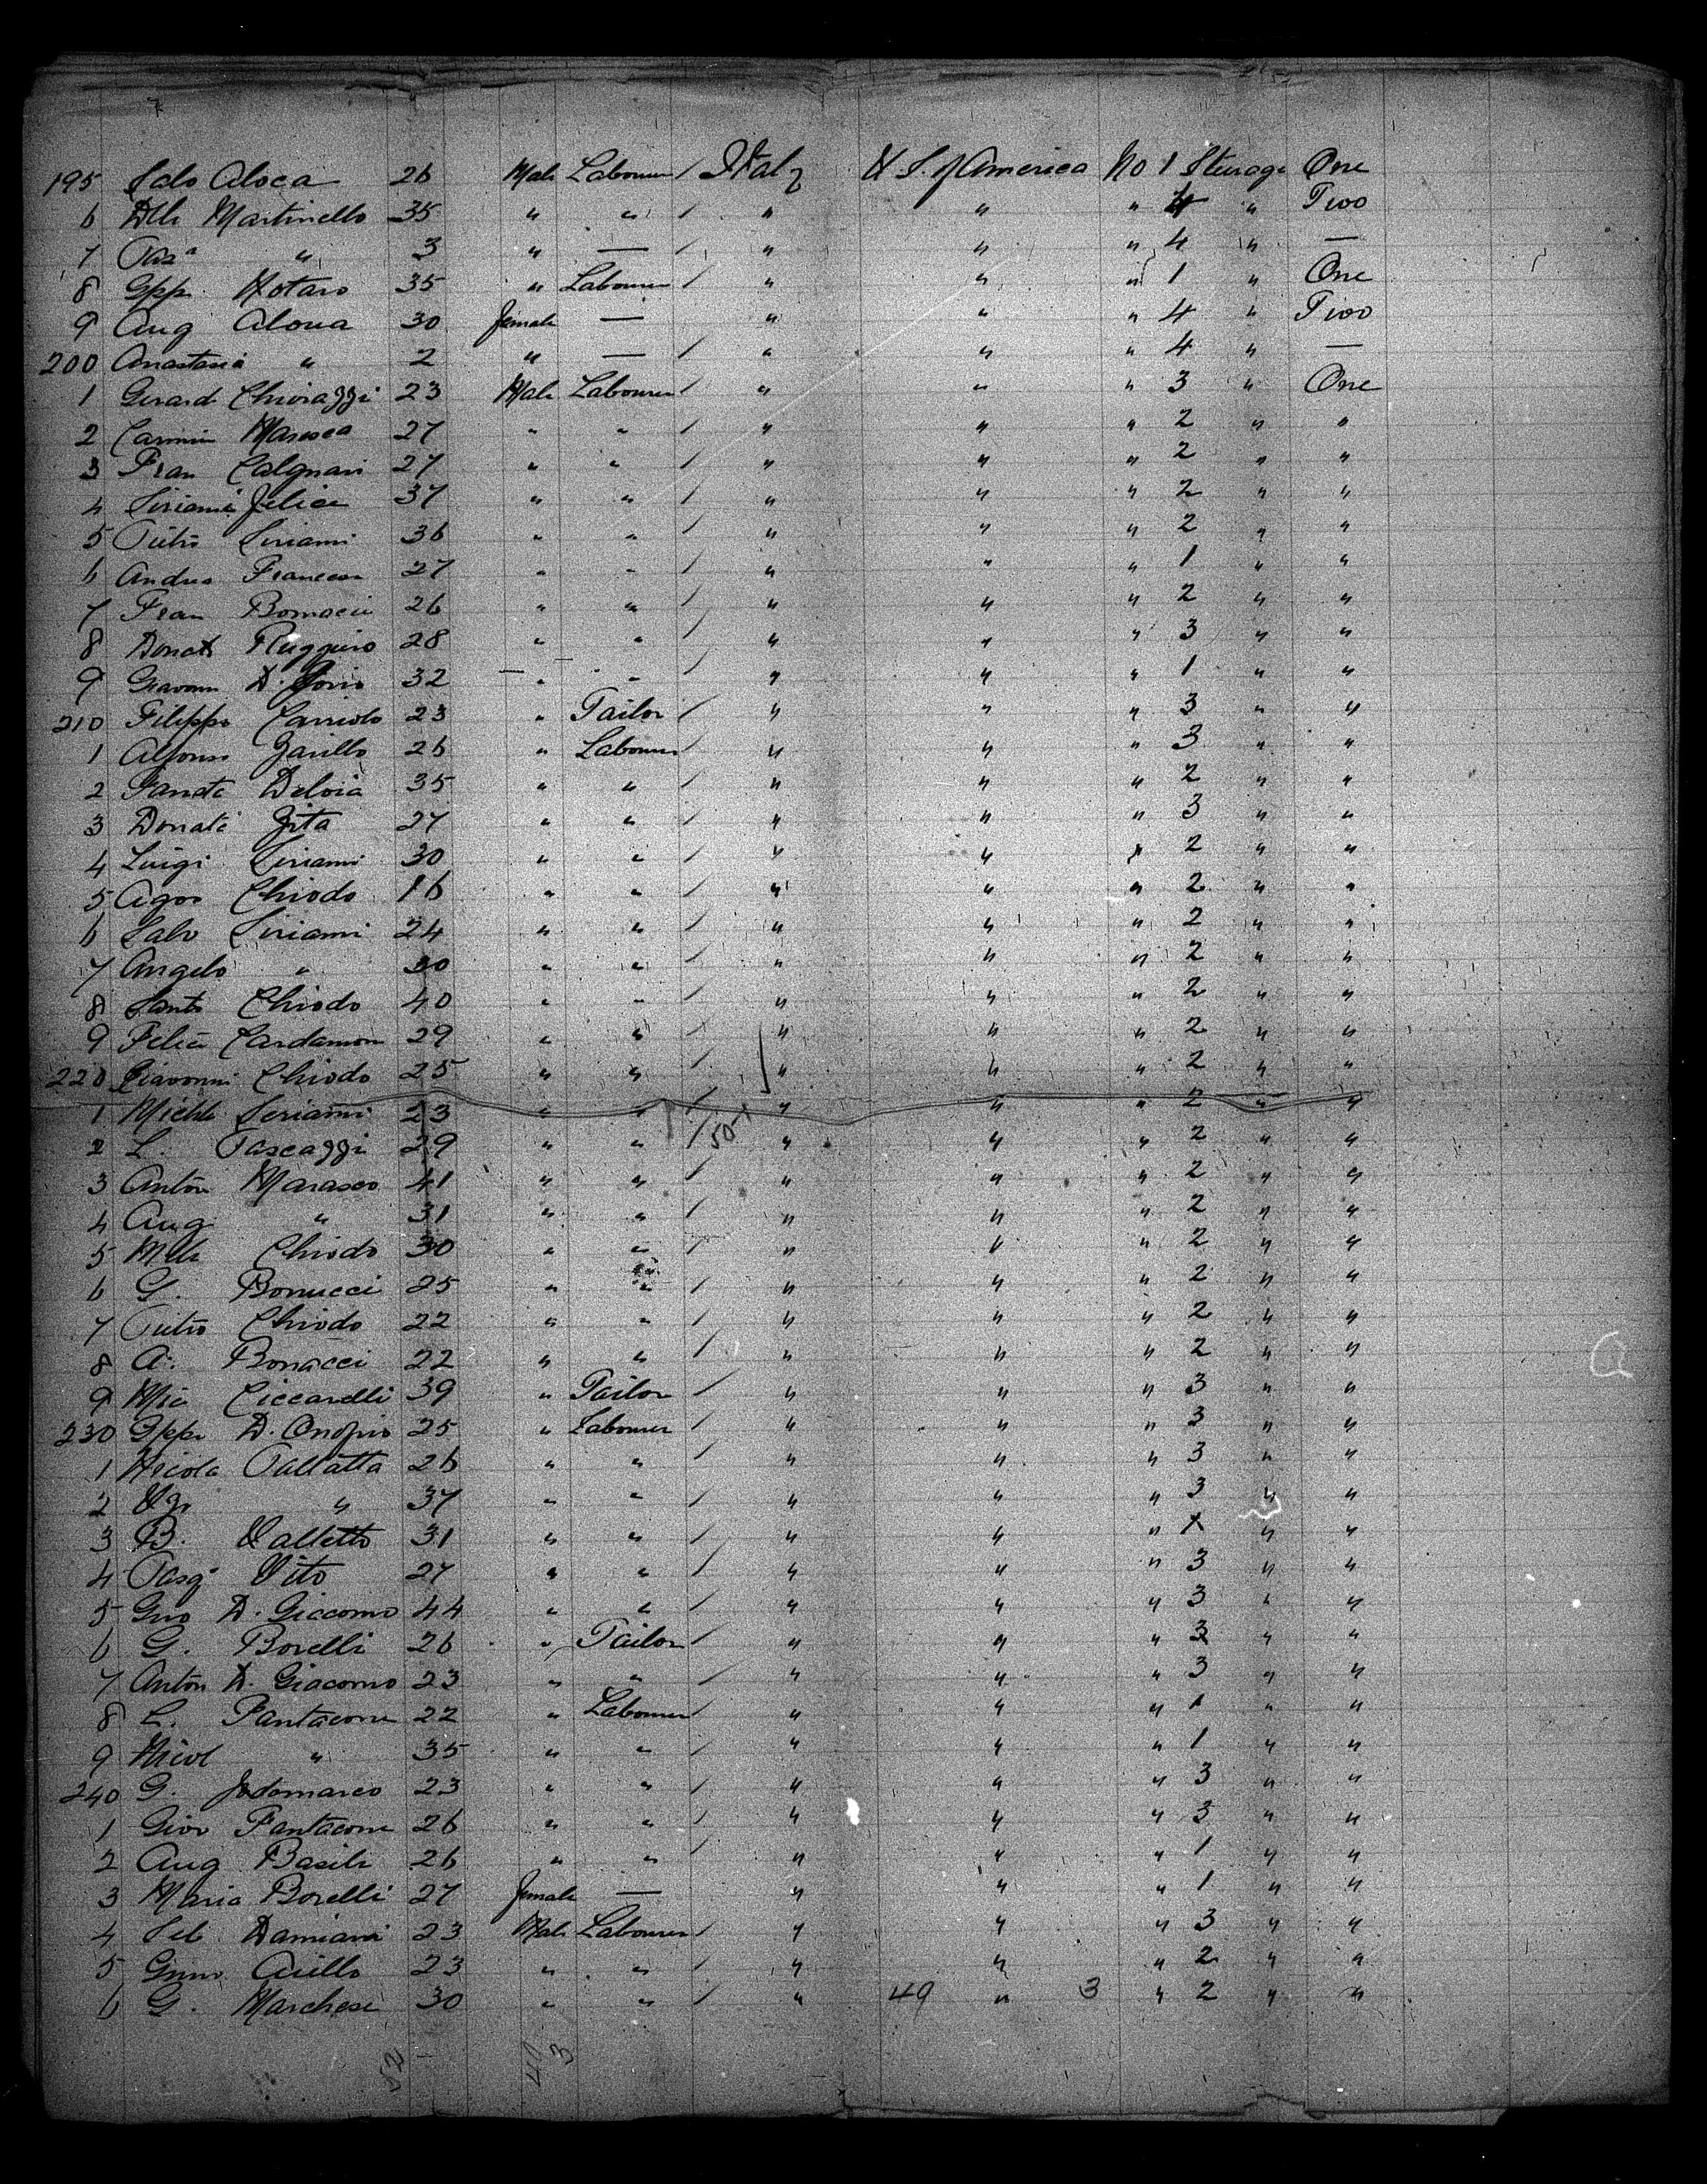 195 Salv Aloca 26 Male Labourer / Italy U S. of America No 1 Steerage One
6 Martinello 35 " " / " " " 4 " Two
7 " 3 " — / " " " 4 " —
8 Gpp. Notaro 35 " Labourer / " " " 1 " One
9 Aug 30 female — " " " 4 " Two
200 Anastasia " 2 " — / " " " 4 " —
1 Gerard Chioiazzi 23 Male Labourer / " " " 3 " One
2 Carmin 27 " " / " " " 2 " "
3 Fran Calgnari 27 " " / " " " 2 " "
4 Siriami Felice 37 " " / " " " 2 " "
5 Pietro Siriami 36 " " / " " " 2 " "
6 Andrea 27 " " / " " " 1 " "
7 Fran 26 " " / " " " 2 " "
8 Donato Ruggiero 28 " " / " " " 3 " "
9 Giavonn D. 32 " " / " " " 1 " "
210 Filippo 23 " Tailor / " " " 3 " "
1 Alfonso Zarillo 26 " Labourer / " " " 3 " "
2 35 " " / " " " 2 " "
3 Donato Zita 27 " " / " " " 3 " "
4 Luigi Siriami 30 " " / " " " 2 " "
5 Agos Chiodo 16 " " / " " " 2 " "
6 Salv Siriami 24 " " / " " " 2 " "
7 Angelo " 30 " " / " " " 2 " "
8 Santo Chiodo 40 " " / " " " 2 " "
9 Felice Cardamon 29 " " / " " " 2 " "
220 Giavonni Chiodo 25 " " / " " " 2 " "
1 Michele Seriami 23 " " / " " " 2 " "
2 L. Pascazzi 29 " " / " " " 2 " "
3 Anton Marasco 41 " " / " " " 2 " "
4 Aug " 31 " " / " " " 2 " "
5 Chiodo 30 " " / " " " 2 " "
6 G. Bonucci 25 " " / " " " 2 " "
7 Pietro Chiodo 22 " " / " " " 2 " "
8 A. Bonacci 22 " " / " " " 2 " "
9 Mic Ciccarelli 39 " Tailor / " " " 3 " "
230 Gppe D. Onofrio 25 " Labourer / " " " 3 " "
1 Nicola Pallatta 26 " " / " " " 3 " "
2 " 37 " " / " " " 3 " "
3 B. Valletto 31 " " / " " " 1 " "
4 Pasq Vito 27 " " / " " " 3 " "
5 D. Giacomo 44 " " / " " " 3 " "
6 G. Borelli 26 " Tailor / " " " 3 " "
7 Anton D. Giacomo 23 " " / " " " 3 " "
8 L. Pantacone 22 " Labourer / " " " 1 " "
9 Nicol " 35 " " / " " " 1 " "
240 G. 23 " " / " " " 3 " "
1 Giov Pantacone 26 " " / " " " 3 " "
2 Aug Basile 26 " " / " " " 1 " "
3 Maria Borelli 27 female — " " " 1 " "
4 Seb Damiani 23 Male Labourer / " " " 3 " "
5 Cirillo 23 " " / " " " 2 " "
6 G. Marchese 30 " " / " 49 " 3 " 2 " "
52 49 3